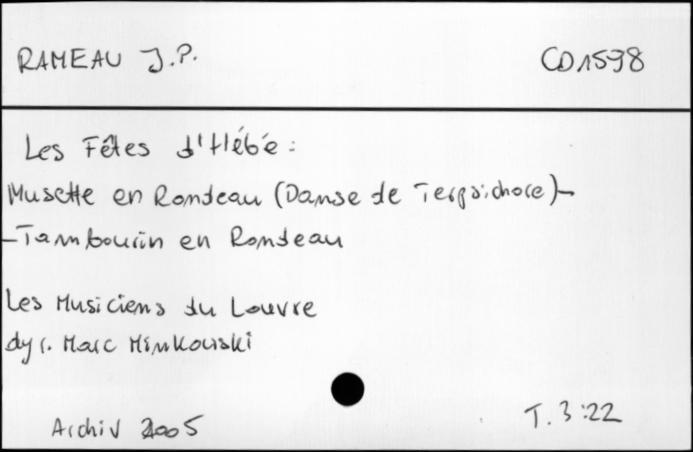 RAMEAU J.P. CD1598
Les Fêtes d'Hébé :
Musette en Rondeau (Danse de Terpsichore) -
- Tambourin en Rondeau
Les Musiciens du Louvre
dyr. Marc Minkowski
Archiv 2005 T. 3:22